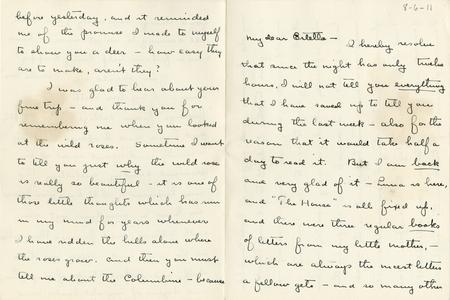 before yesterday, and it reminded
me of the promise I made to myself
to show you a deer - how easy they
are to make, aren't they?
I was glad to hear about your
fine trip - and thank you for
remembering me when you looked
at the wild roses. Sometime I want
to tell you just why the wild rose
is really so beautiful - it is one of
those little thoughts which has run
in my mind for years whenever
I have ridden the hills alone where
the roses grow. And then you must
tell me about the Columbine - because
8-6-11
My dear - I hereby resolve
that since the night has only twelve
hours, I will not tell you everything
that I have saved up to tell you
during the last week - also for the
reason that it would take half a
day to read it. But I am back
and very glad of it - is here,
and "The House" is all fixed up,
and there were three regular books
of letters from my little mother, -
which are always the nicest letters
a fellow gets - and so many other